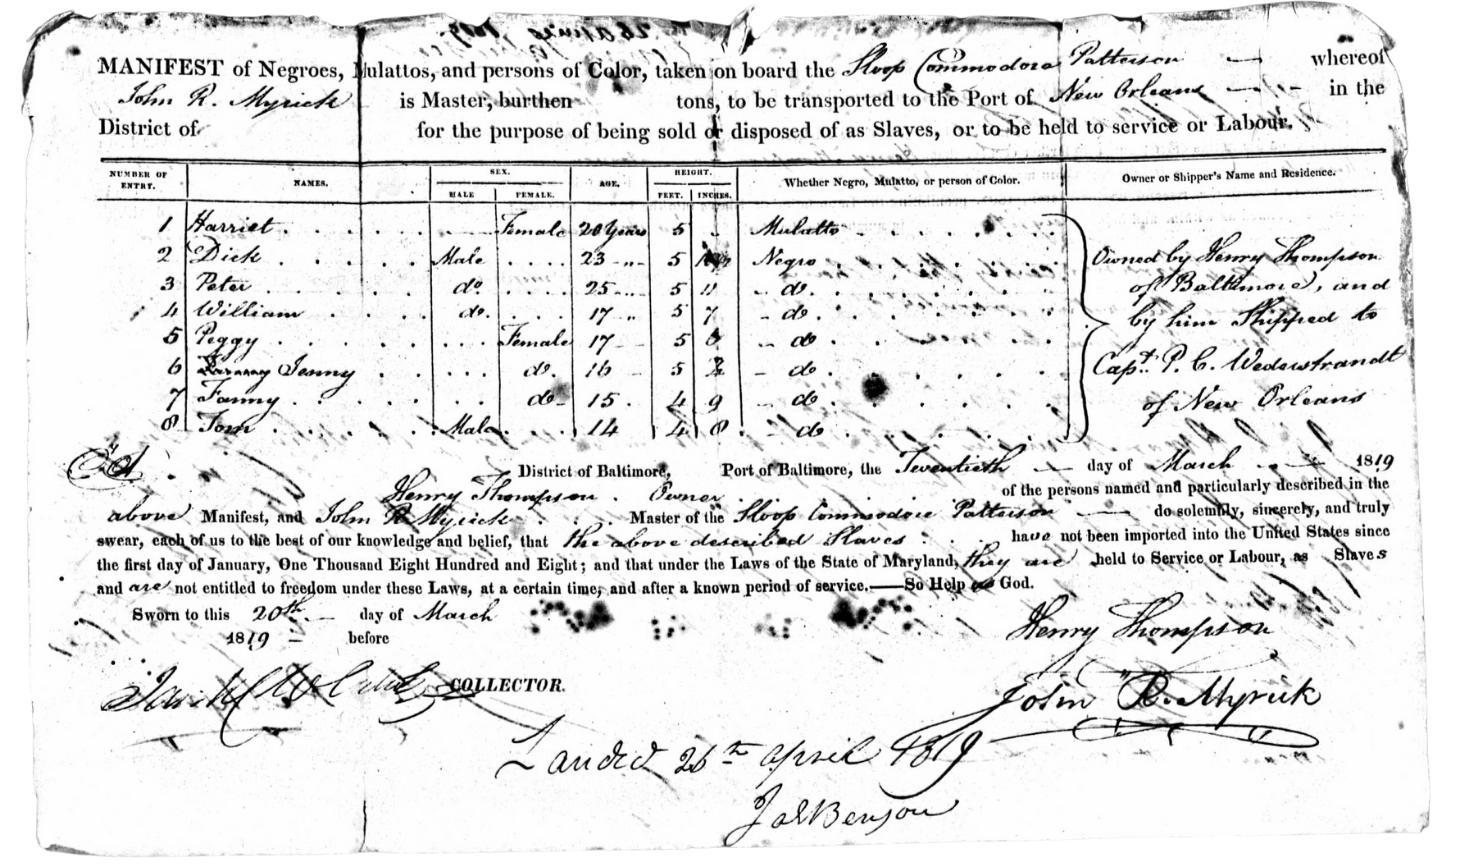 MANIFEST of Negroes, Mulattos, and persons of Color, taken on board the Sloop Commodore Patterson whereof
John R. Myrick is Master, burthen tons, to be transported to the Port of New Orleans in the
District of for the purpose of being sold or disposed of as Slaves, or to be held to service or Labour.
NUMBER OF ENTRY. NAMES. SEX. MALE FEMALE. AGE. HEIGHT. FEET. INCHES. Whether Negro, Mulatto, or person of Color. Owner or Shipper's Name and Residence.
1 Harriet Female 20 Years 5 Mulatto
2 Dick Male 23 5 Negro Owned by Henry Thompson
3 Peter do 25 5 11 do of Baltimore, and
4 William do. 17 5 7 do by him Shipped to
5 Peggy Female 17 5 do
6 Jenny do. 16 5 2 do Capt. P. C. Wederstrandt
7 Fanny do 15 4 9 do of New Orleans
8 Tom Male 14 4 8 do
District of Baltimore, Port of Baltimore, the Twentieth day of March 1819
Henry Thompson Owner of the persons named and particularly described in the
above Manifest, and John R Myrick Master of the Sloop Commodore Patterson do solemnly, sincerely, and truly
swear, each of us to the best of our knowledge and belief, that the above described Slaves have not been imported into the United States since
the first day of January, One Thousand Eight Hundred and Eight; and that under the Laws of the State of Maryland, they are held to Service or Labour, as Slaves
and are not entitled to freedom under these Laws, at a certain time, and after a known period of service.—So Help God.
Sworn to this 20th day of March
1819 before
Henry Thompson
COLLECTOR.
John R. Myrick
Landed 26th April 1819
Benson